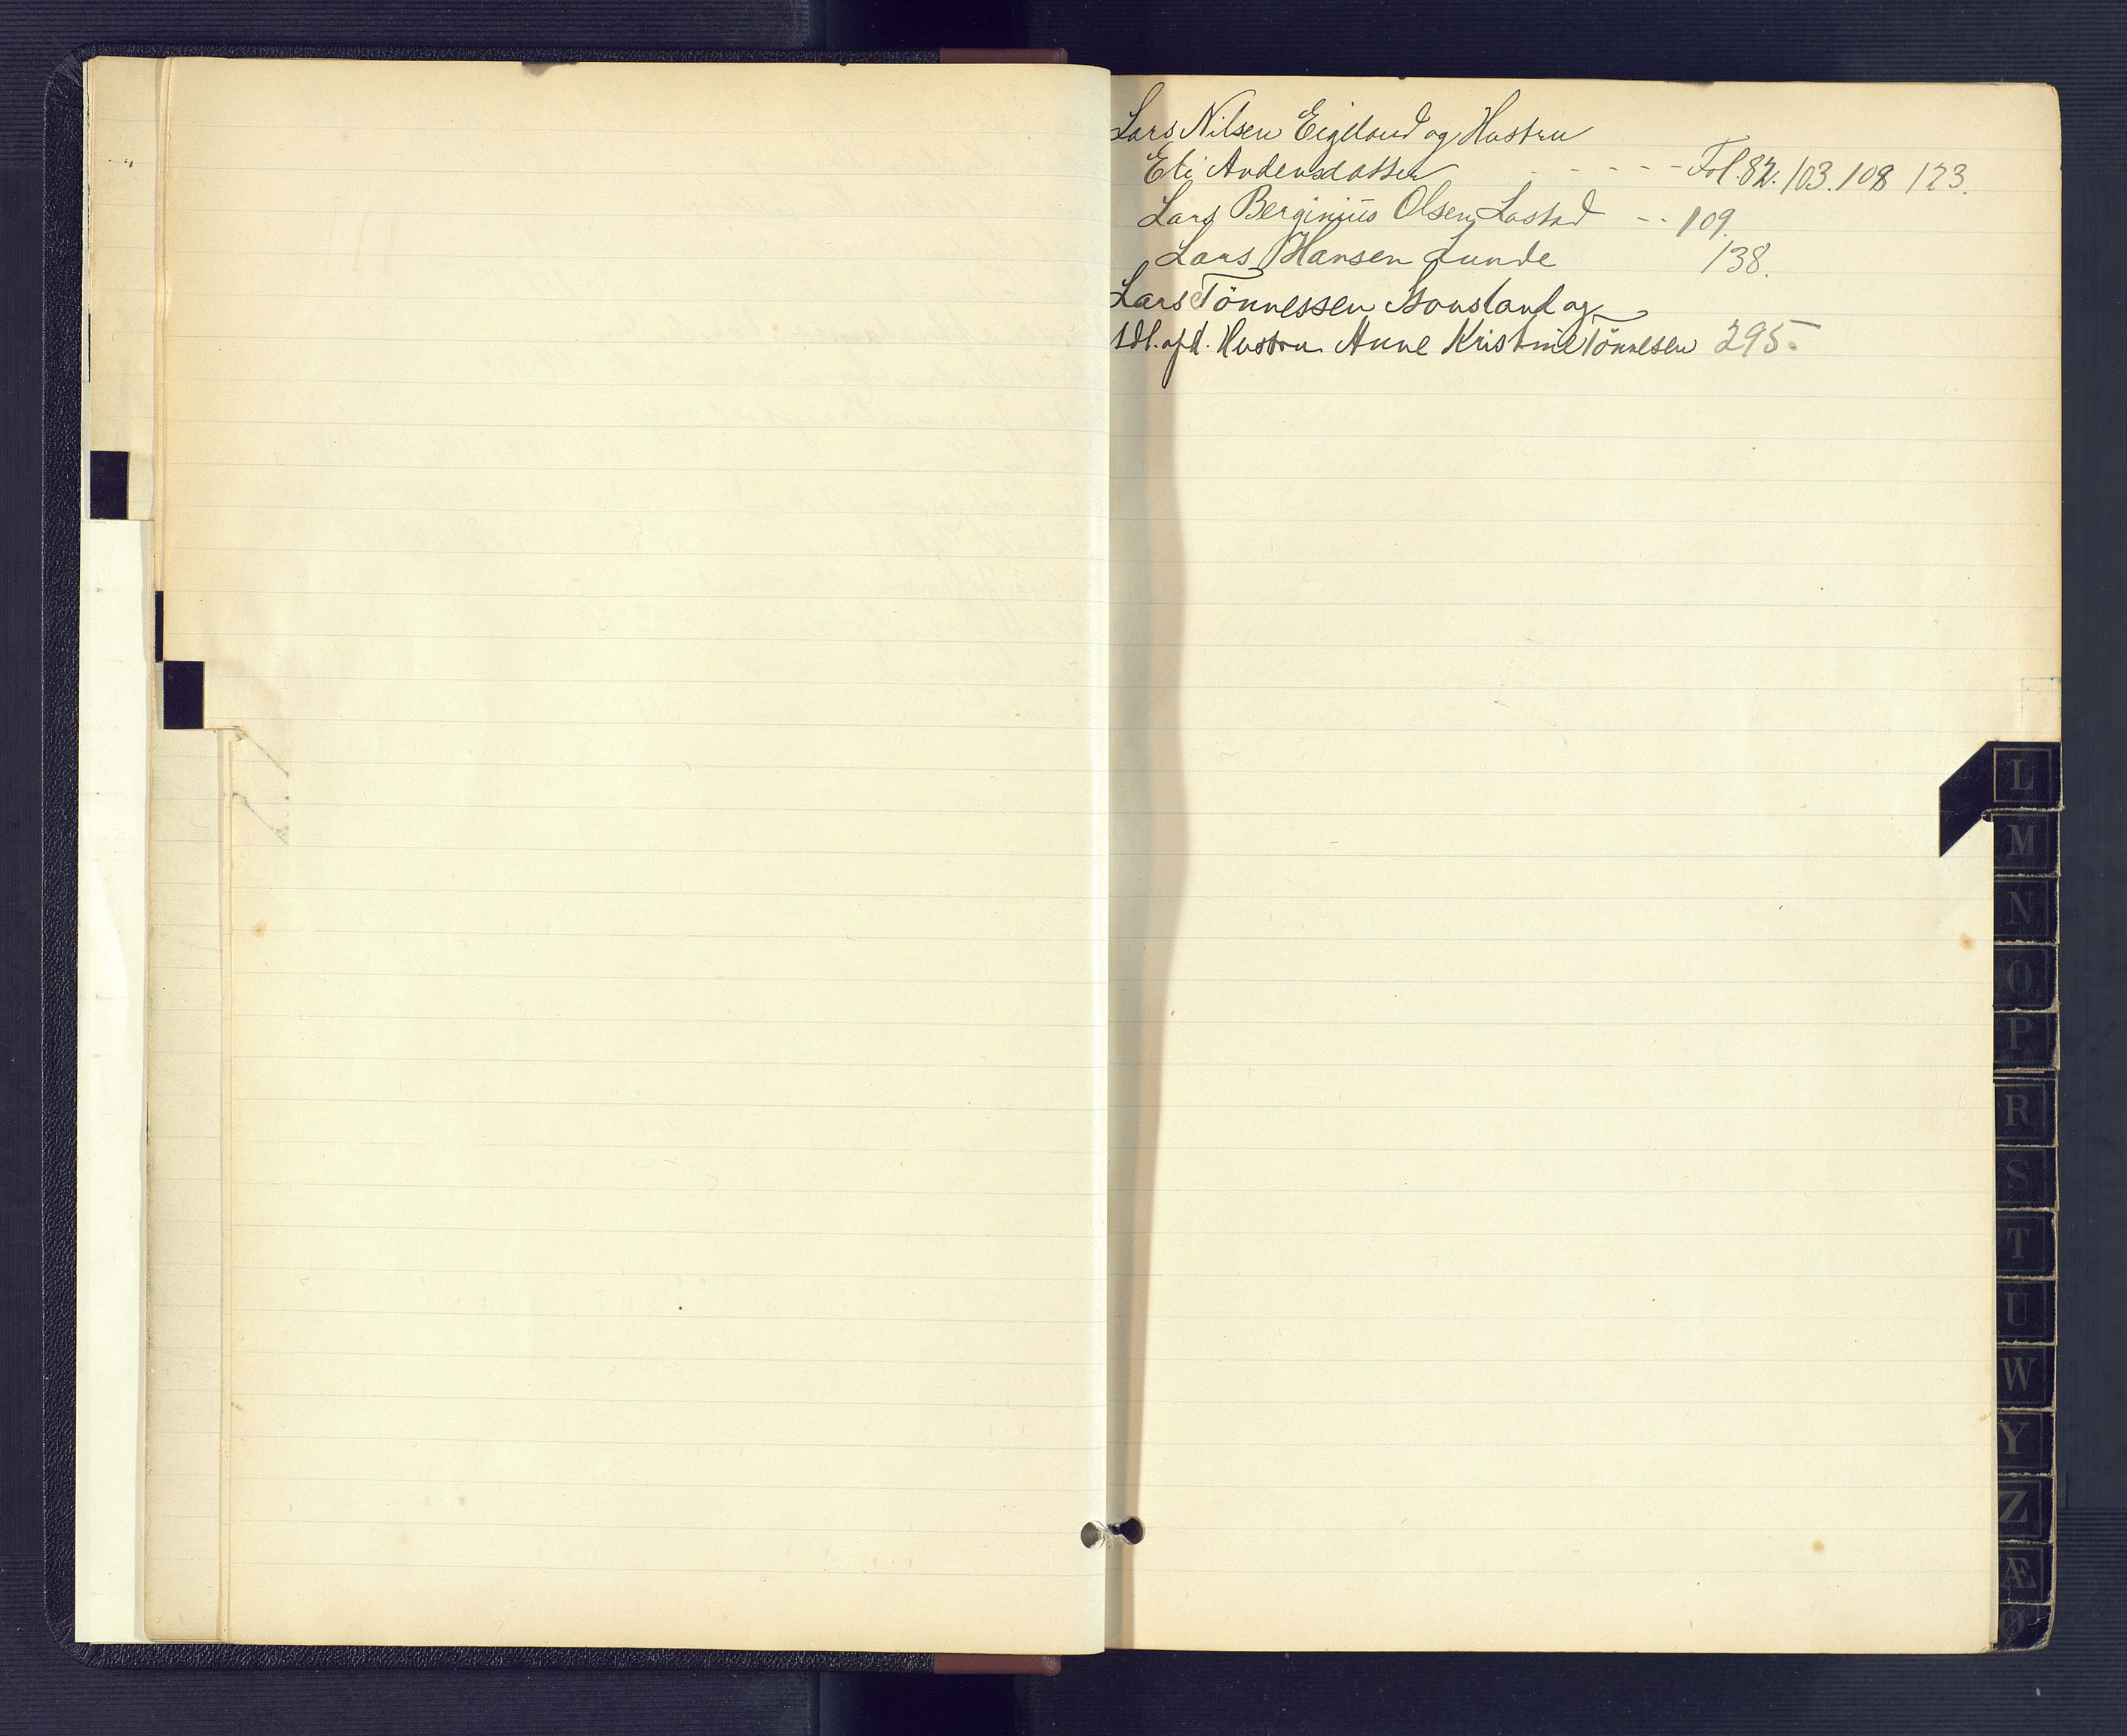 Lars Nilsen Eigeland og Hustru
Eli Andersdatter - - - - - Fol. 82. 103. 108 123.
Lars Berginius Olsen Lastad - - 109.
Lars Hansen Lunde 138.
Lars Tönnessen og
sdl. afd. Hustru Anne Kristine Tönnesen 295.
L
M
N
O
P
R
S
T
U
W
Y
Z
Æ
Ø